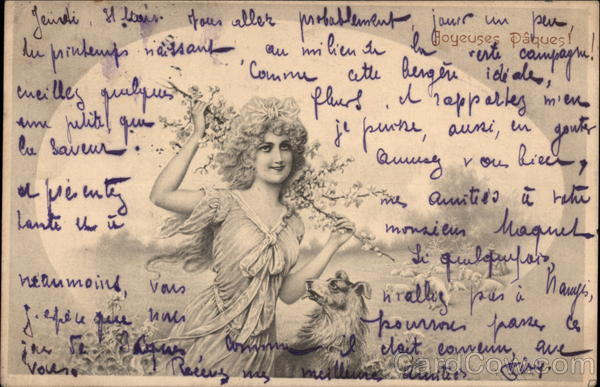 Jeudi, 31 Mars. Vous allez probablement, jouir un peu,
Joyeuses Pâques!
du printemps naissant, au milieu de la verte campagne!
Comme cette bergère idéale,
cueillez quelques fleurs, et rapportez m'en
une petite, que je puisse, aussi, en goûter
la saveur. Amusez vous bien,
et présentez mes amitiés à votre
tante et à monsieur Maquet
Si quelquefois,
néanmoins, vous n'allez pas à
j'espère que nous pourrons passer ce
jour de Pâques comme il était convenu, avec
vous. Recevez mes meilleures amitiés
CardCow.com